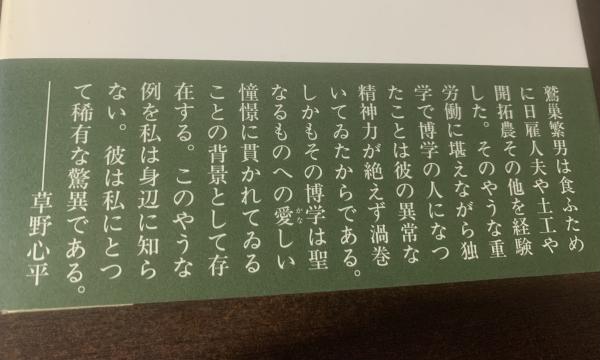 鷲巣繁男は食ふため
に日雇人夫や土工や
開拓農その他を経験
した。そのやうな重
労働に堪えながら独
学で博学の人になつ
たことは彼の異常な
精神力が絶えず渦巻
いてゐたからである。
しかもその博学は聖
なるものへの愛しい
かな
憧憬に貫かれてゐる
ことの背景として存
在する。このやうな
例を私は身辺に知ら
ない。彼は私にとつ
て稀有な驚異である。
――草野心平